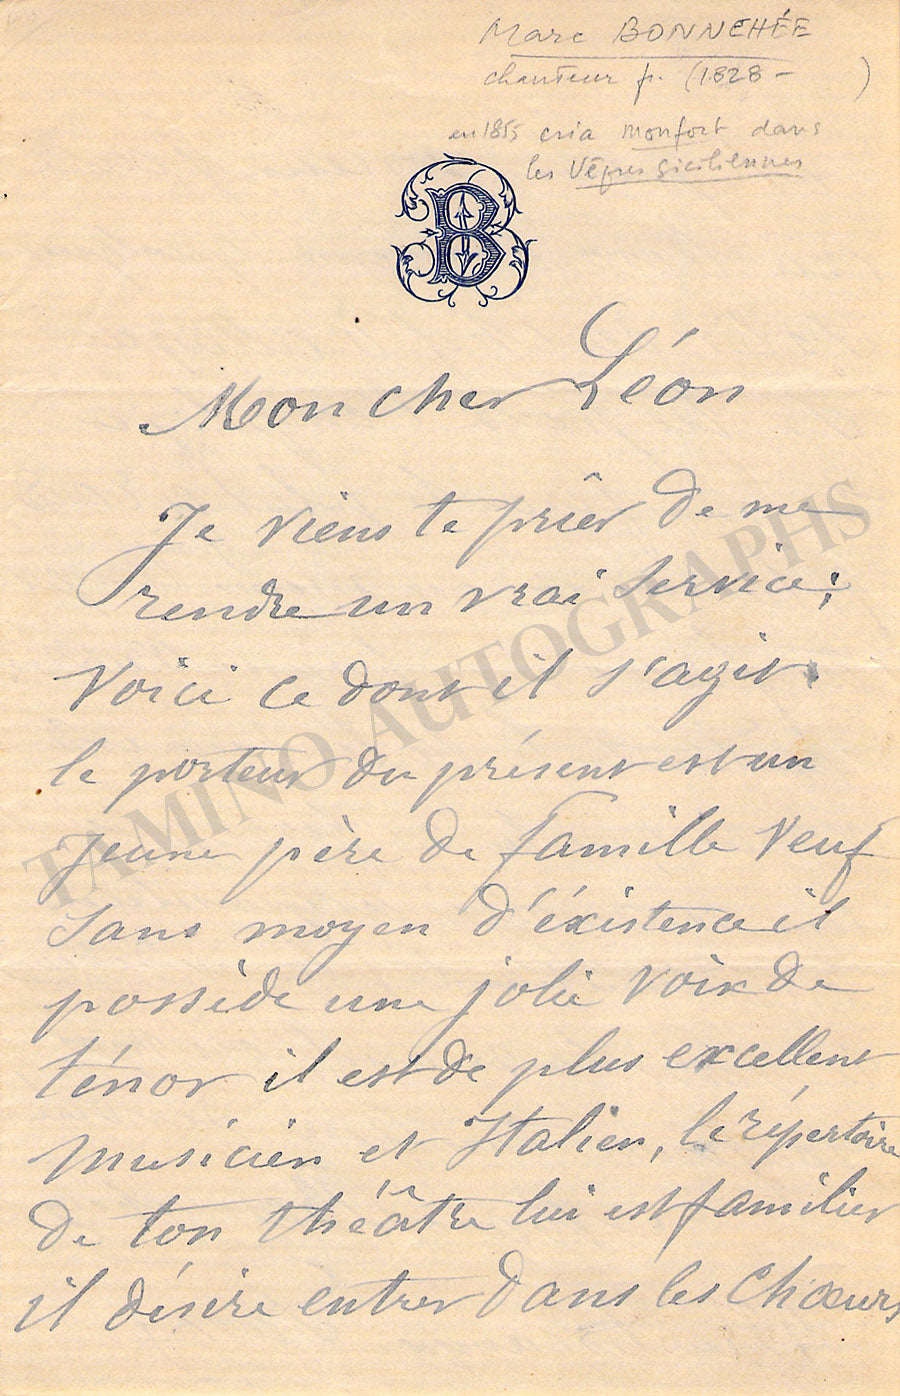 Marc BONNEHÉE
chanteur f. (1828 - )
en 1855 créa Monfort dans
les Vêpres Siciliennes
B
Mon cher Léon
Je viens te prier de me
rendre un vrai service;
Voici ce dont il s'agit.
le porteur du présent est un
jeune père de famille Veuf
sans moyen d'éxistence il
possède une jolie voix de
ténor il est de plus excellent
musicien et Italien, le répertoire
de ton théâtre lui est familier
il désire entrer dans les Chœurs
TAMINO AUTOGRAPHS